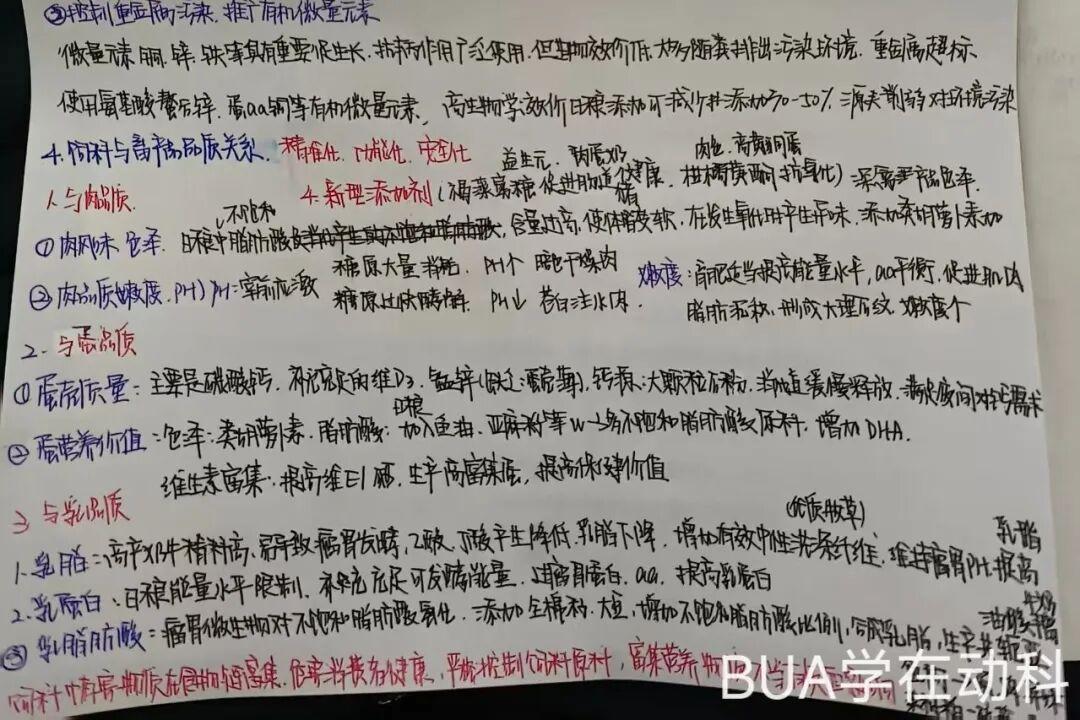 ③控制重金属污染.推广有机微量元素
微量元素铜.锌.铁等具有重要促生长.抗病作用广泛使用.但生物效价低.大多随粪排出污染环境.重金属超标
使用氨基酸螯合锌.蛋aa铜等有机微量元素,高生物学效价日粮添加可减少其添加30-50%.源头削弱对环境污染
4.饲料与畜产品品质关系.精准化.功能化.安全化
益生元.肉蛋奶 肉色.高黄酮蛋
1.与肉品质. 4.新型添加剂(褐藻寡糖促进肠道健康.柑橘黄酮抗氧化)
①肉风味 色泽.日粮中不饱和脂肪酸含量过高.使体脂变软.易发生氧化酸败产生异味.添加类胡萝卜素加深禽蛋产品色泽.
②肉品质嫩度.PH) PH:宰前应激 糖原大量消耗.PH↑ 暗色干燥肉 嫩度:育肥适当提高能量水平,aa平衡.促进肌肉
糖原过快酵解.PH↓ 苍白注水肉. 脂肪沉积.形成大理石纹.嫩度个
2.与蛋品质
①蛋壳质量:主要是碳酸钙.补充充足的维D3.锰锌(缺乏:蛋壳薄).钙源:大颗粒石粉.缓慢释放.满足夜间对钙需求
②蛋营养价值:色泽:类胡萝卜素.脂肪酸:日粮加入鱼油.亚麻籽等w-3多不饱和脂肪酸原料.增加DHA.
维生素富集:提高维E硒.生产高富集蛋,提高保健价值
3 与乳品质
(优质牧草)
1.乳脂:高产奶牛精料高.易导致瘤胃发酵,乙酸.丁酸产生降低.乳脂下降.增加有效中性洗涤纤维.维持瘤胃PH.提高乳脂
2.乳蛋白.日粮能量水平限制.补充充足可发酵能量.过瘤胃蛋白.aa.提高乳蛋白
③乳脂脂肪酸:瘤胃微生物对不饱和脂肪酸氢化.添加全棉籽.大豆,增加不饱和脂肪酸比例,合成乳脂,生产共轭亚油酸牛奶
饲料中有害物质在食物链富集.危害消费者健康.严格控制饲料原料,富集营养物质
BUA学在动科